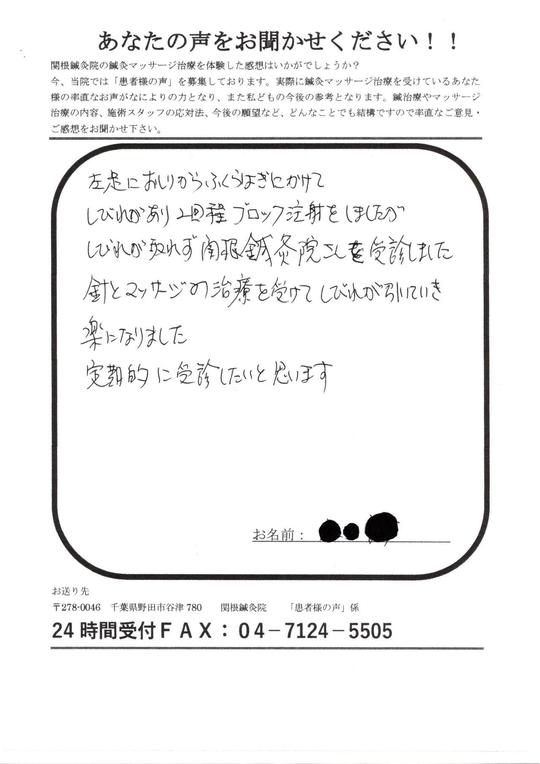 あなたの声をお聞かせください！！
関根鍼灸院の鍼灸マッサージ治療を体験した感想はいかがでしょうか？
今、当院では「患者様の声」を募集しております。実際に鍼灸マッサージ治療を受けているあなた
様の率直なお声がなによりの力となり、また私どもの今後の参考となります。鍼治療やマッサージ
治療の内容、施術スタッフの応対法、今後の願望など、どんなことでも結構ですので率直なご意見・
ご感想をお聞かせ下さい。
左足におしりからふくらはぎにかけて
しびれがあり2回程ブロック注射をしましたが
しびれが取れず関根鍼灸院さんを受診しました
針とマッサージの治療を受けてしびれが引いていき
楽になりました
定期的に受診したいと思います
お名前：
お送り先
〒278-0046 千葉県野田市谷津780 関根鍼灸院 「患者様の声」係
24時間受付ＦＡＸ：０４－７１２４－５５０５